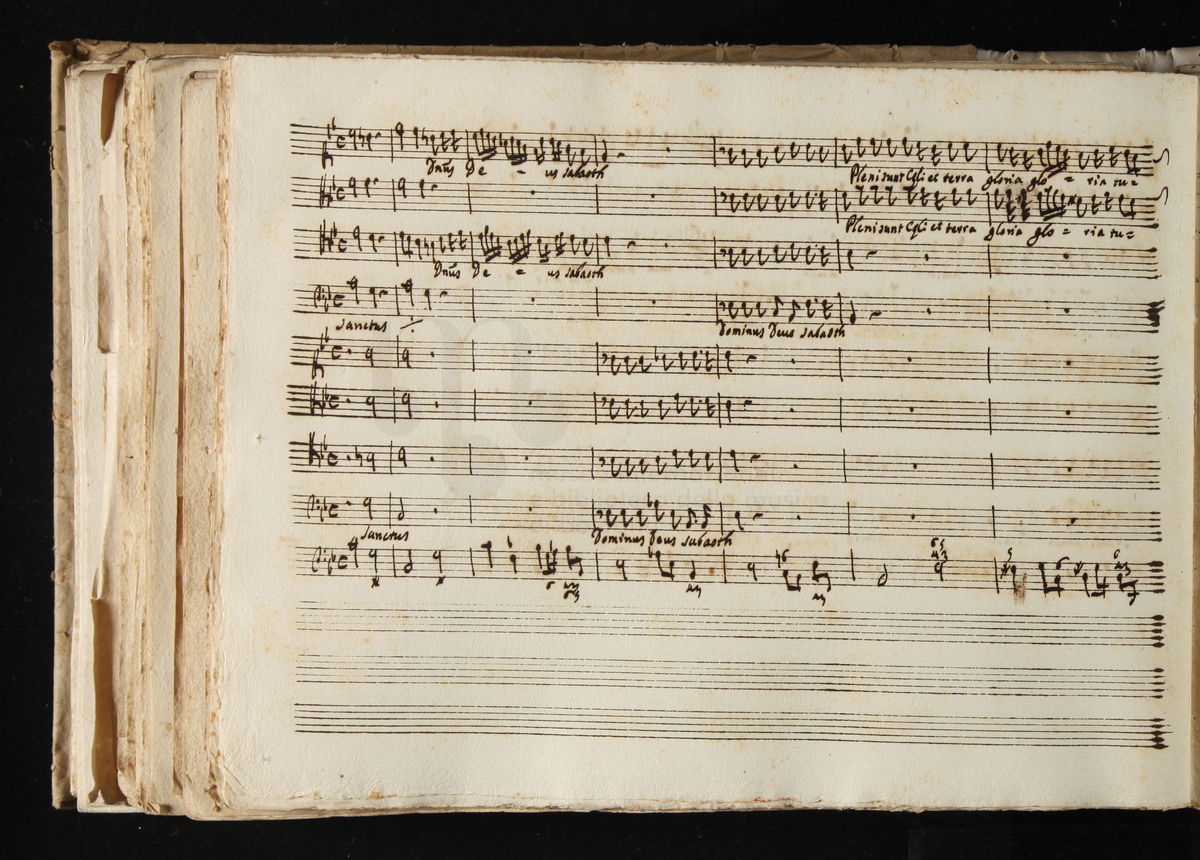 Dñus De = us sabaoth Pleni sunt Cęli et terra gloria glo = ria tu =
Pleni sunt Cęli et terra gloria glo = ria tu =
Dñus De = us sabaoth
sanctus ·/· Dominus Deus sabaoth
sanctus Dominus Deus sabaoth